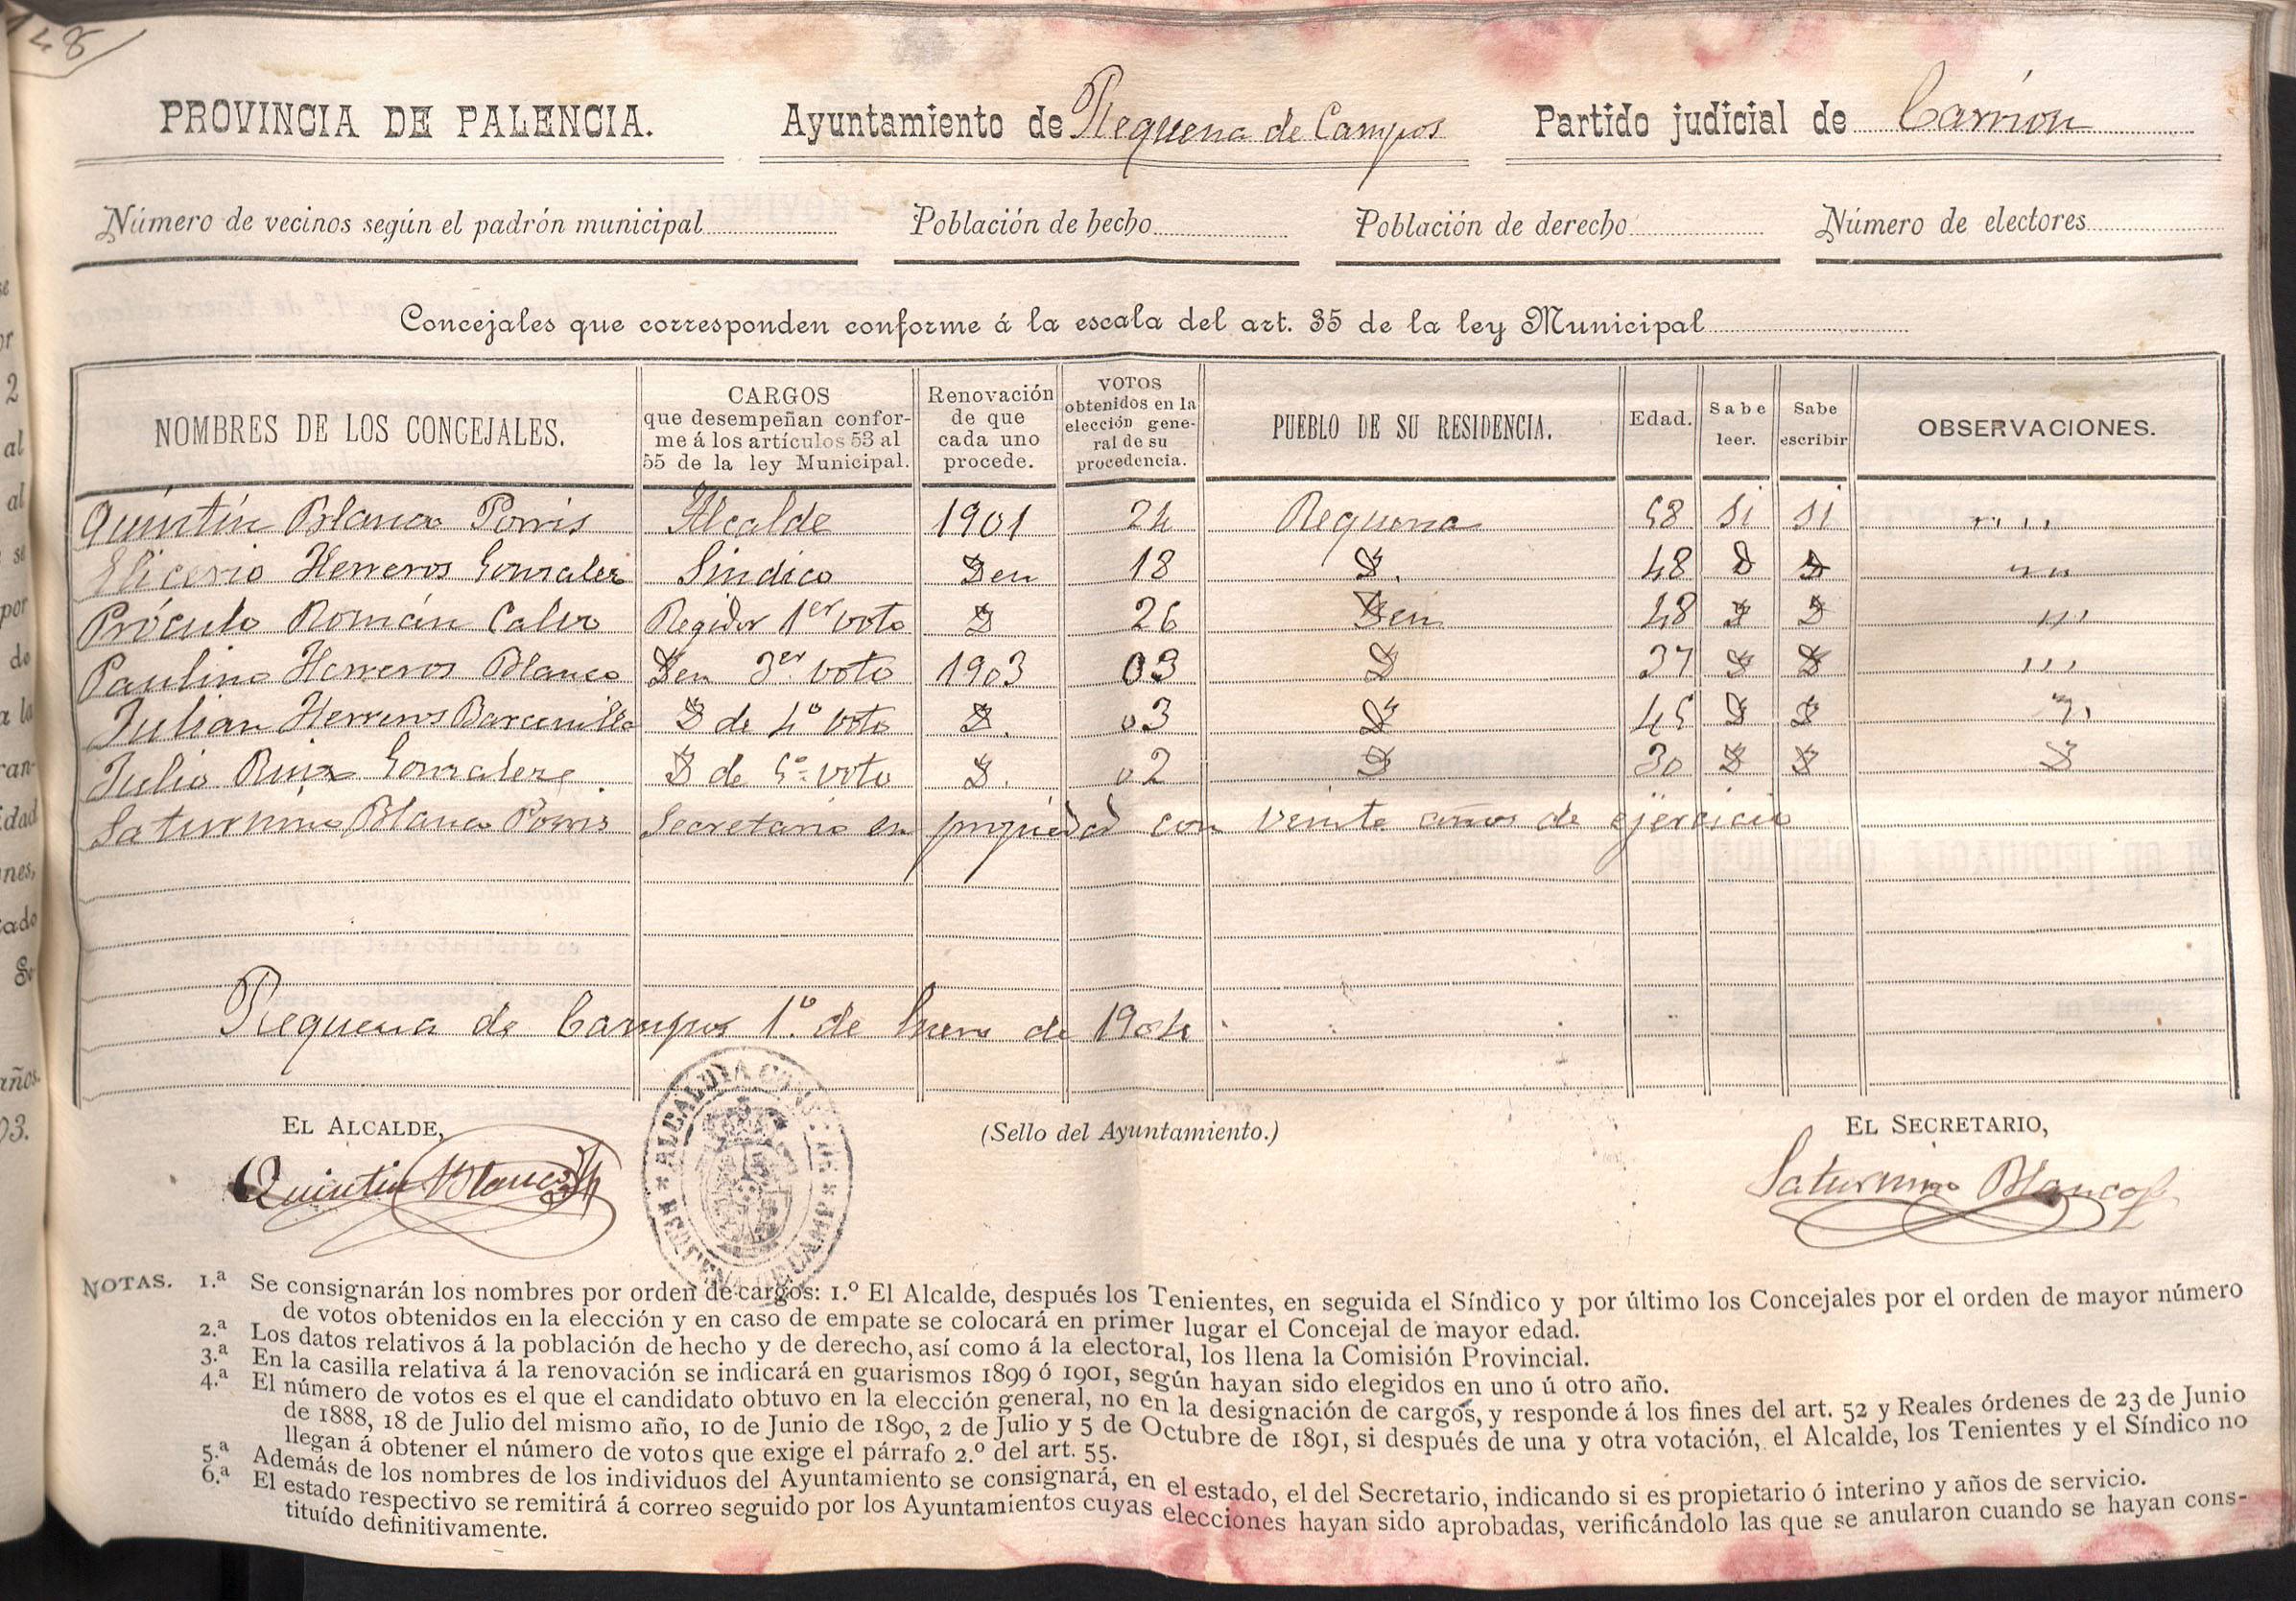 48
PROVINCIA DE PALENCIA. Ayuntamiento de Requena de Campos Partido judicial de Carrión
Número de vecinos según el padrón municipal Población de hecho Población de derecho Número de electores
Concejales que corresponden conforme á la escala del art. 35 de la ley Municipal
NOMBRES DE LOS CONCEJALES. CARGOS que desempeñan conforme á los artículos 53 al 55 de la ley Municipal. Renovación de que cada uno procede. VOTOS obtenidos en la elección general de su procedencia. PUEBLO DE SU RESIDENCIA. Edad. Sabe leer. Sabe escribir OBSERVACIONES.
Quintín Blanco Porris Alcalde 1901 24 Requena 58 Si Si " " "
Glicerio Herreros Gonzalez Sindico Den 18 D. 48 D D " "
Próculo Román Calvo Regidor 1er voto D 26 Den 48 D D " "
Paulino Herreros Blanco Den 3er voto 1903 03 D 37 D D " " "
Julian Herreros Barcenilla D de 4º voto D. 03 D 45 D D "
Julio Ruiz Gonzalez. D de 5º voto D. 02 D 30 D D D
Saturnino Blanco Porris Secretario en propiedad con veinte años de ejercicio
Requena de Campos 1º de Enero de 1904.
EL ALCALDE, (Sello del Ayuntamiento.) EL SECRETARIO,
Quintin Blanco Saturnino Blanco
ALCALDIA CONST. DE * REQUENA DE CAMP *
NOTAS. 1.ª Se consignarán los nombres por orden de cargos: 1.º El Alcalde, después los Tenientes, en seguida el Síndico y por último los Concejales por el orden de mayor número
de votos obtenidos en la elección y en caso de empate se colocará en primer lugar el Concejal de mayor edad.
2.ª Los datos relativos á la población de hecho y de derecho, así como á la electoral, los llena la Comisión Provincial.
3.ª En la casilla relativa á la renovación se indicará en guarismos 1899 ó 1901, según hayan sido elegidos en uno ú otro año.
4.ª El número de votos es el que el candidato obtuvo en la elección general, no en la designación de cargos, y responde á los fines del art. 52 y Reales órdenes de 23 de Junio
de 1888, 18 de Julio del mismo año, 10 de Junio de 1890, 2 de Julio y 5 de Octubre de 1891, si después de una y otra votación, el Alcalde, los Tenientes y el Síndico no
llegan á obtener el número de votos que exige el párrafo 2.º del art. 55.
5.ª Además de los nombres de los individuos del Ayuntamiento se consignará, en el estado, el del Secretario, indicando si es propietario ó interino y años de servicio.
6.ª El estado respectivo se remitirá á correo seguido por los Ayuntamientos cuyas elecciones hayan sido aprobadas, verificándolo las que se anularon cuando se hayan cons-
tituído definitivamente.